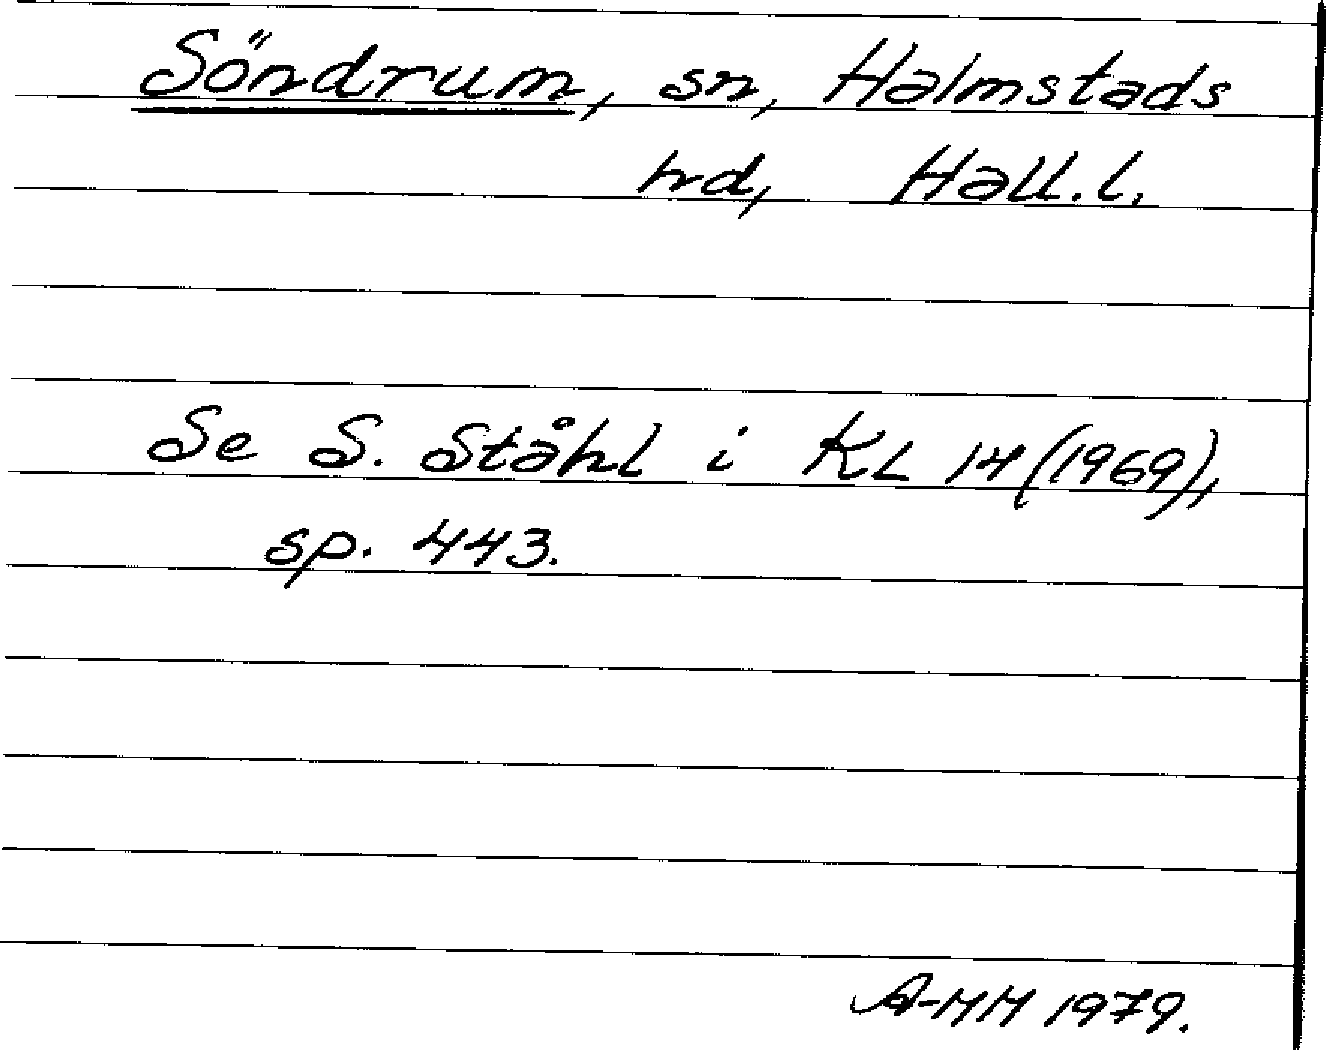 Söndrum, sn, Halmstads
hrd, Hall.l.
Se S. Ståhl i KL 14 (1969),
sp. 443.
A-MM 1979.